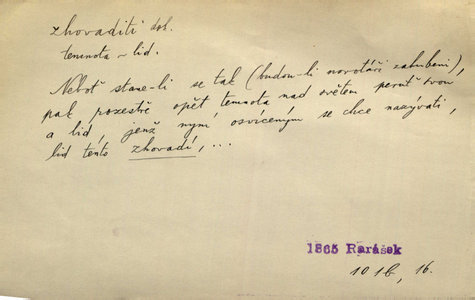 zhovaditi dok.
temnota ~ lid.
Neboť stane-li se tak (budou-li novotáři zahubeni),
pak rozestře opět temnota nad světem peruť svou
a lid, jenž nyní osvíceným se chce nazývati,
lid tento zhovadí, ...
1865 Rarášek
10 16, 16.